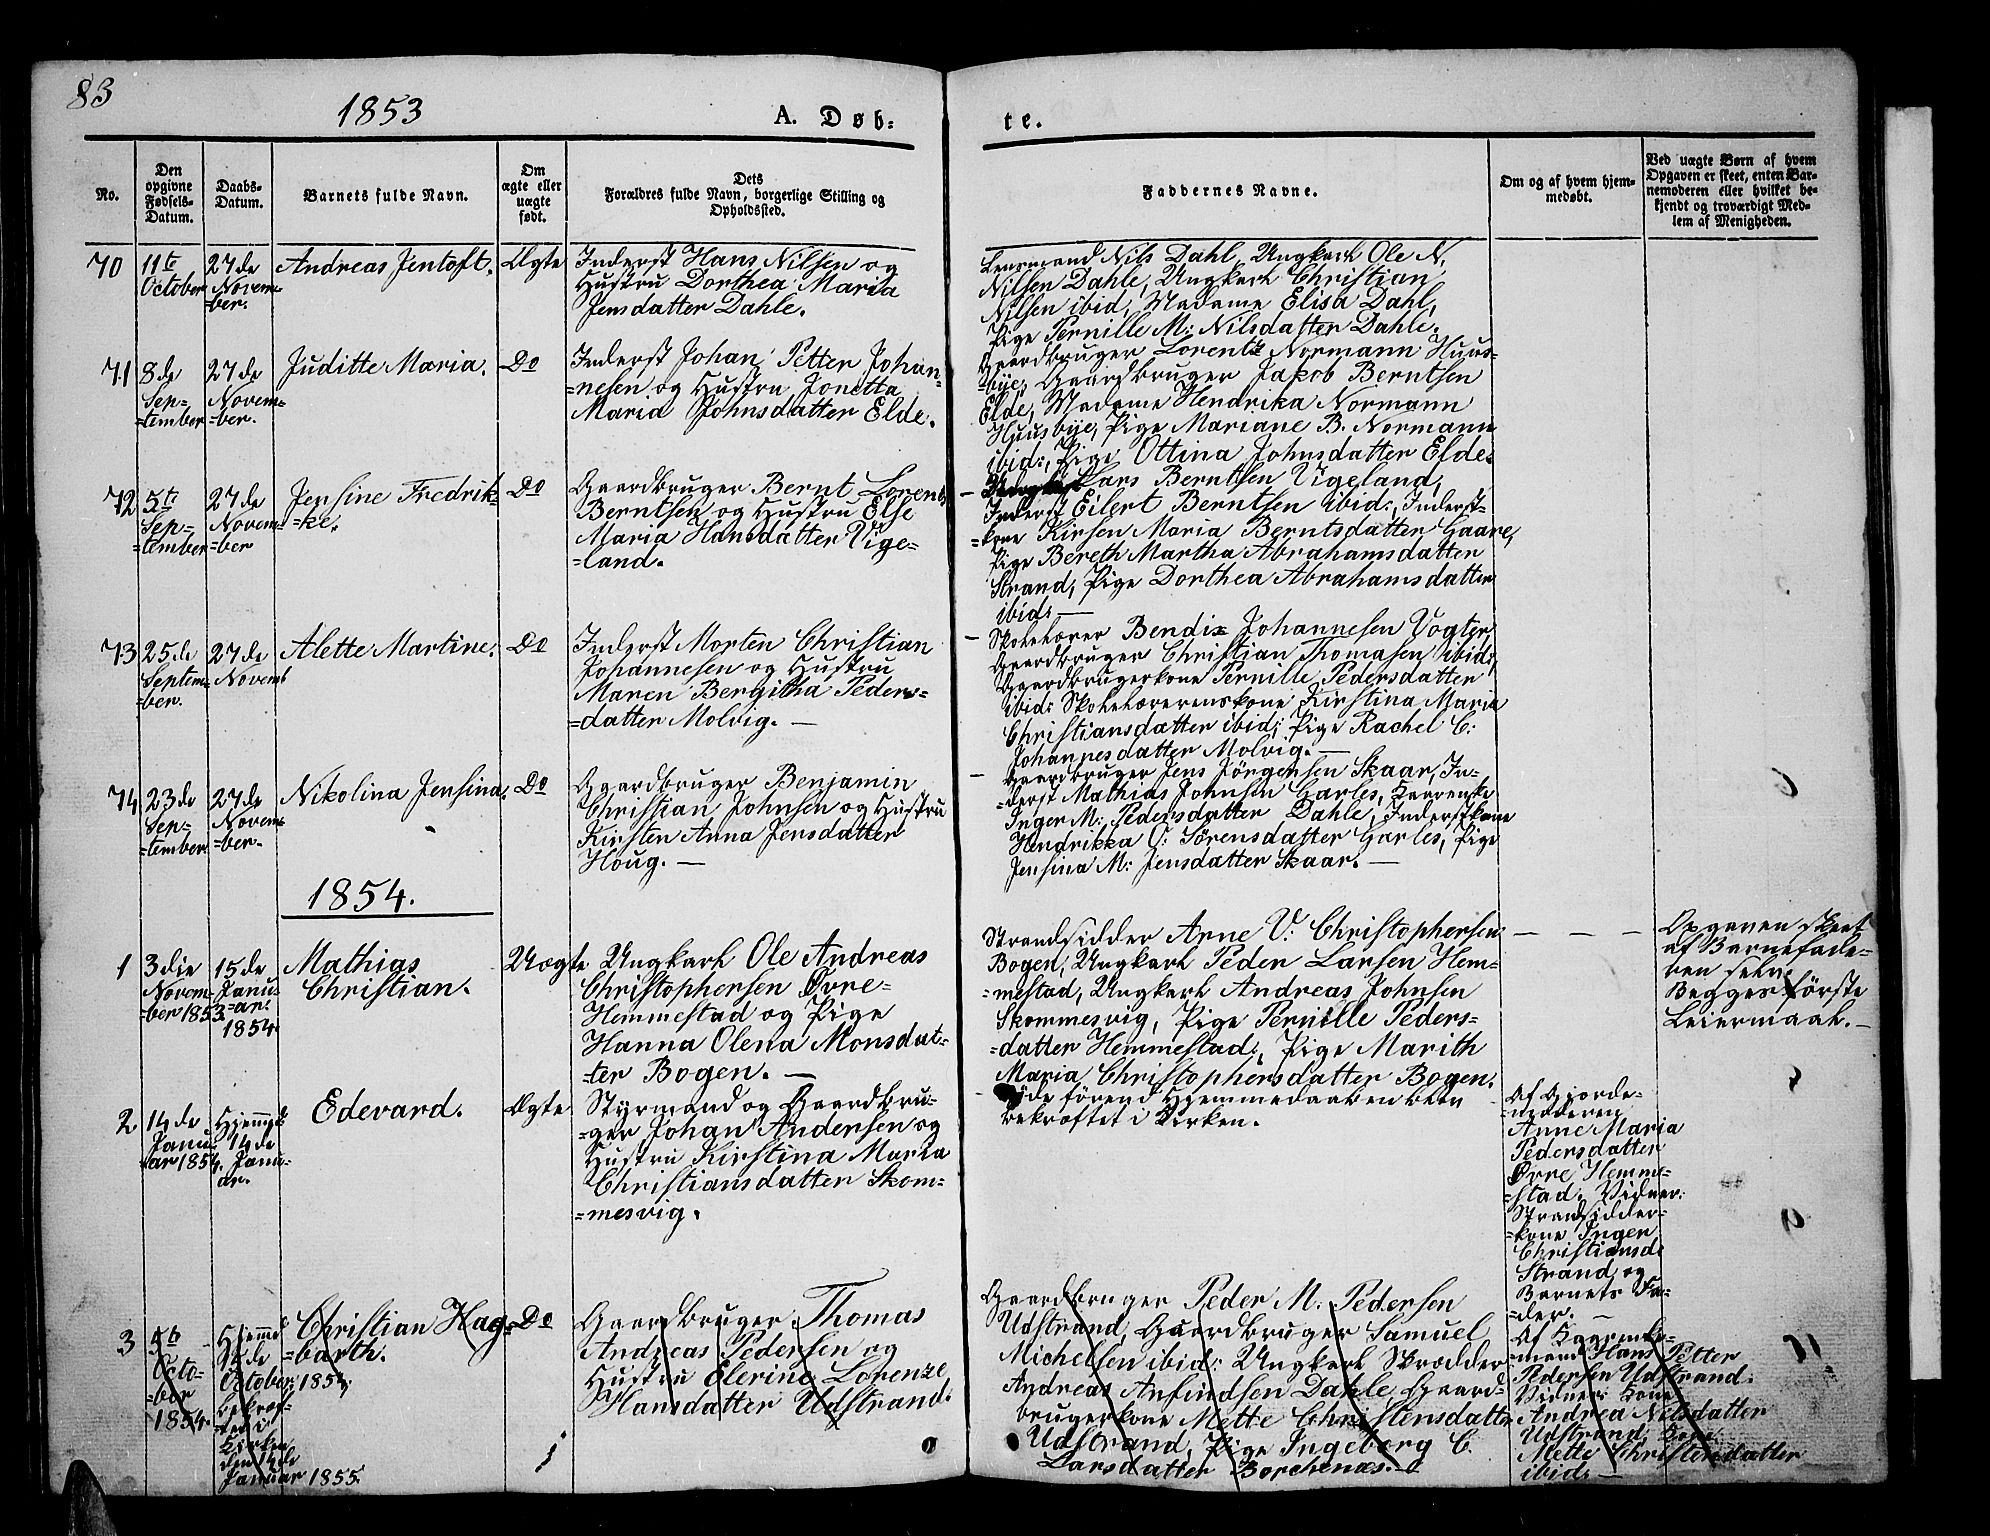 83
1853
A. Døb-
te.
No.
Den
opgivne
Fødsels-
Datum.
Daabs-
Datum.
Barnets fulde Navn.
Om
ægte eller
uægte
født.
Dets
Forældres fulde Navn, borgerlige Stilling og
Opholdssted.
Faddernes Navne.
Om og af hvem hjem-
medøbt.
Ved uægte Børn af hvem
Opgaven er skeet, enten Bar-
nemoderen eller hvilket be-
kjendt og troværdigt Med-
lem af Menigheden.
70
11te
October
27de
Novem-
=ber.
Andreas Jentoft.
Ægte
Inderst Hans Nilsen og
Hustru Dorthea Maria
Jensdatter Dahle.
Lensmand Nils Dahl, Ungkarl Ole N.
Nilsen Dahle, Ungkarl Christian
Nilsen ibid, Madame Elisa Dahl,
Pige Pernille M: Nilsdatter Dahle.
71
8de
Sep-
=tember
27de
Novem-
=ber.
Juditte Maria.
Do
Inderst Johan Petter Johan-
=nesen og Hustru Jonetta
Maria Johnsdatter Elde.
Gaardbruger Lorentz Normann Huus-
=bye, Gaardbruger Jakob Berntsen
Elde, Madame Hendrika Normann
Huusbye, Pige Mariane B. Normann
ibid:, Pige Ottina Johnsdatter Elde.
72
5te
Sep-
=tember
27de
Novem-
=ber
Jensine Fredrik-
=ke.
Do
Gaardbruger Bernt Lorents
Berntsen og Hustru Else
Maria Hansdatter Vige-
=land.
Lars Berntsen Vigeland,
Inderst Eilert Berntsen ibid:, Inderst-
=kone Kirsen Maria Berntsdatter Gaare,
Pige Bereth Martha Abrahamsdatter
Strand, Pige Dorthea Abrahamsdatter
ibid: —
73
25de
Septem-
ber.
27de
Novemb
Alette Martine.
Do
Inderst Morten Christian
Johannesen og Hustru
Maren Bergitha Peders-
=datter Molvig. —
— Skolelærer Bendix Johannesen Vogter,
Gaardbruger Christian Thomasen ibid:,
Gaardbrugerkone Pernille Pedersdatter
ibid: Skolelærerenskone Kirstina Maria
Christiansdatter ibid; Pige Rachel C:
Johannesdatter Molvig. —
74
23de
Sep-
=tember
27de
Novem-
=ber.
Nikolina Jensina.
Do
Gaardbruger Benjamin
Christian Johnsen og Hustru
Kirsten Anna Jensdatter
Houg. —
— Gaardbruger Jens Jörgensen Skaar, In-
=derst Mathias Johnsen Garles,
Inger M: Pedersdatter Dahle, Inderstkone
Hendrikka O: Sörensdatter Garles, Pige
Jensina M: Jensdatter Skaar. —
1854.
1
3die
Novem-
=ber 1853.
15de
Janu-
=ar
1854.
Mathias
Christian.
Uægte
Ungkarl Ole Andreas
Christophersen Øvre-
Hemmestad og Pige
Hanna Olena Monsdat-
=ter Bogen. —
Strandsidder Arne V: Christophersen
Bogen, Ungkarl Peder Larsen Hem-
=mestad, Ungkarl Andreas Johnsen
Skommesvig, Pige Pernille Peders-
=datter Hemmestad:, Pige Marith
Maria Christophersdatter Bogen.
— — —
Opgaven skeet
af Barnefade-
ren selv.
Begges förste
Leiermaal. —
2
14de
Janu-
ar 1854.
Hjemmd
14de
Janu-
ar.
Edevard.
Ægte
Styrmand og Gaardbru-
=ger Johan Andersen og
Hustru Kirstina Maria
Christiansdatter Skom-
=mesvig.
Döde förend Hjemmedaaben blev
bekræftet i Kirken.
Af Gjorde-
=moderen
Anne Maria
Pedersdatter
Øvre Hemme-
=stad. Vidner:
Strandsidder-
=kone Inger
Christiansd:
Strand og
Barnets Fa-
=der. —
3
5te
Octo-
=ber
1854.
Hjemmd
5de
October 1854,
bekræf-
=tet i
Kirken
den 14de
Januar 1855.
Christian Hag-
=barth.
Do
Gaardbruger Thomas
Andreas Pedersen og
Hustru Elerine Lorenze
Hansdatter Udstrand.
Gaardbruger Peder M. Pedersen
Udstrand, Gaardbruger Samuel
Michelsen ibid: Ungkarl Skrædder
Andreas Anfindsen Dahle, Gaard-
brugerkone Mette Christensdatter
Udstrand, Pige Ingeborg C.
Larsdatter Borchenæs. —
Af
=mand Hans Petter
Pedersen Udstrand.
Vidner: Kone
Andrea Nilsdatter
Udstrand, Kone
Mette Christensdatter
ibid: —